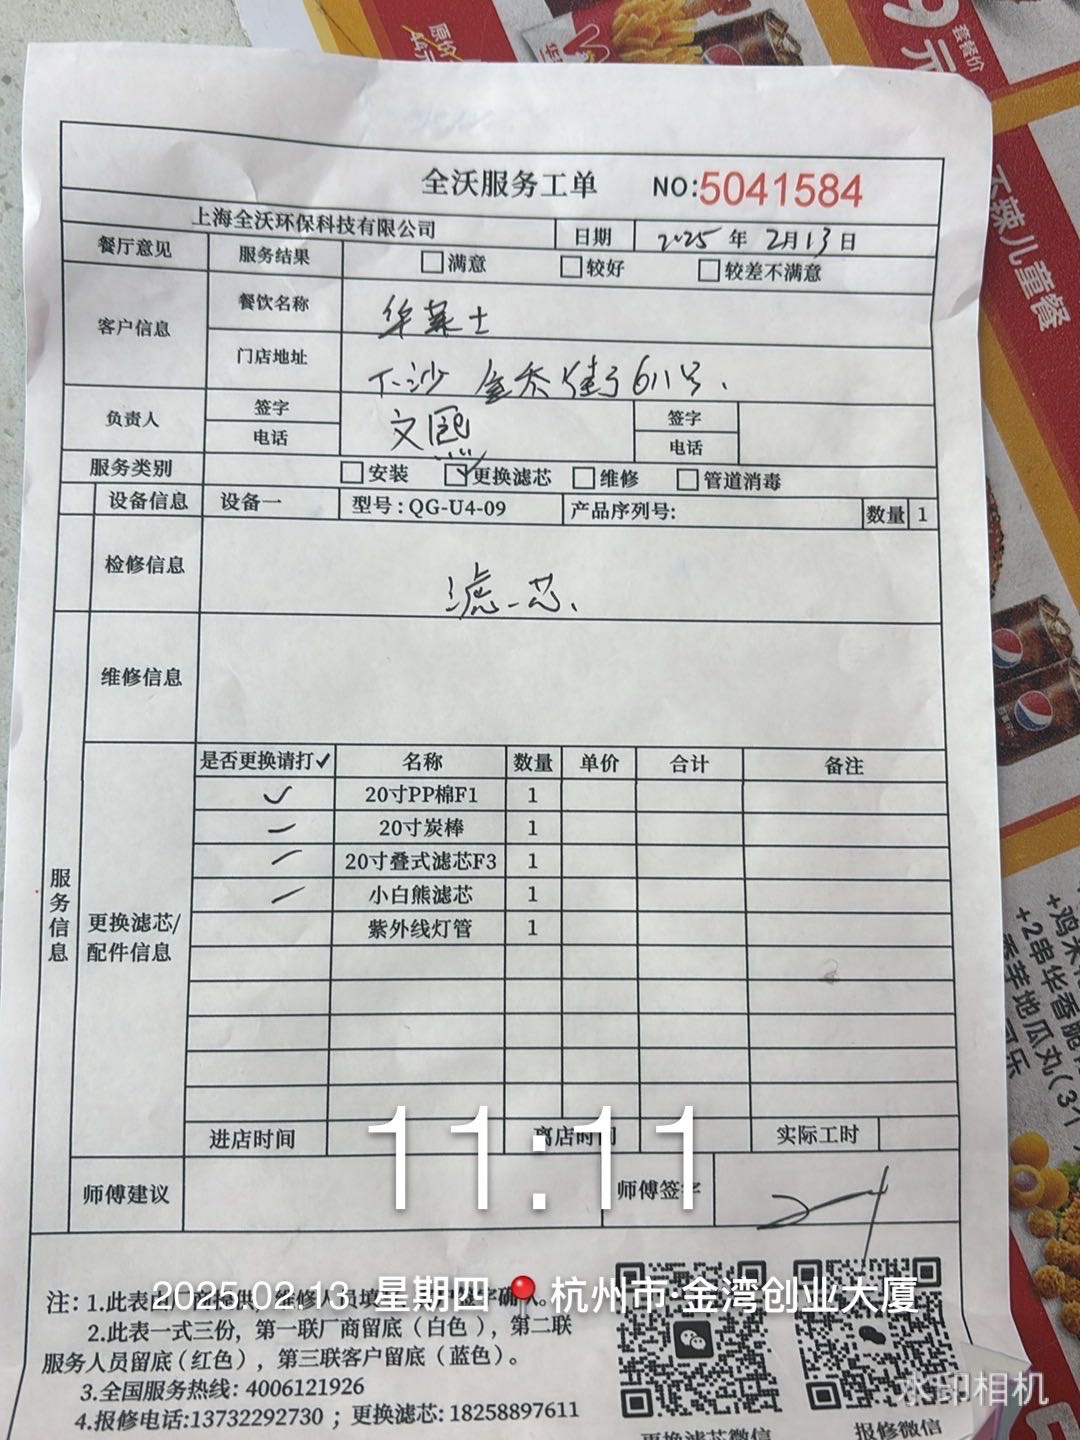 原价
44元
9元
套餐价
不辣儿童餐
全沃服务工单 NO:5041584
上海全沃环保科技有限公司 日期 2025年2月13日
餐厅意见 服务结果 □满意 □较好 □较差不满意
客户信息 餐饮名称 华莱士
门店地址 下沙 金乔街611号.
负责人 签字 文熙 签字
电话 电话
服务类别 □安装 ☑更换滤芯 □维修 □管道消毒
设备信息 设备一 型号:QG-U4-09 产品序列号: 数量 1
检修信息 滤芯.
维修信息
服务信息
更换滤芯/
配件信息
是否更换请打✓ 名称 数量 单价 合计 备注
✓ 20寸PP棉F1 1
20寸炭棒 1
20寸叠式滤芯F3 1
小白熊滤芯 1
紫外线灯管 1
进店时间 离店时间 实际工时
11:11
师傅建议 师傅签字
2025.02.13 星期四 杭州市·金湾创业大厦
注: 1.此表由厂商提供,维修人员填
签字确认。
2.此表一式三份，第一联厂商留底（白色），第二联
服务人员留底（红色），第三联客户留底（蓝色）。
3.全国服务热线: 4006121926
4.报修电话:13732292730 ；更换滤芯: 18258897611
更换滤芯微信 报修微信
水印相机